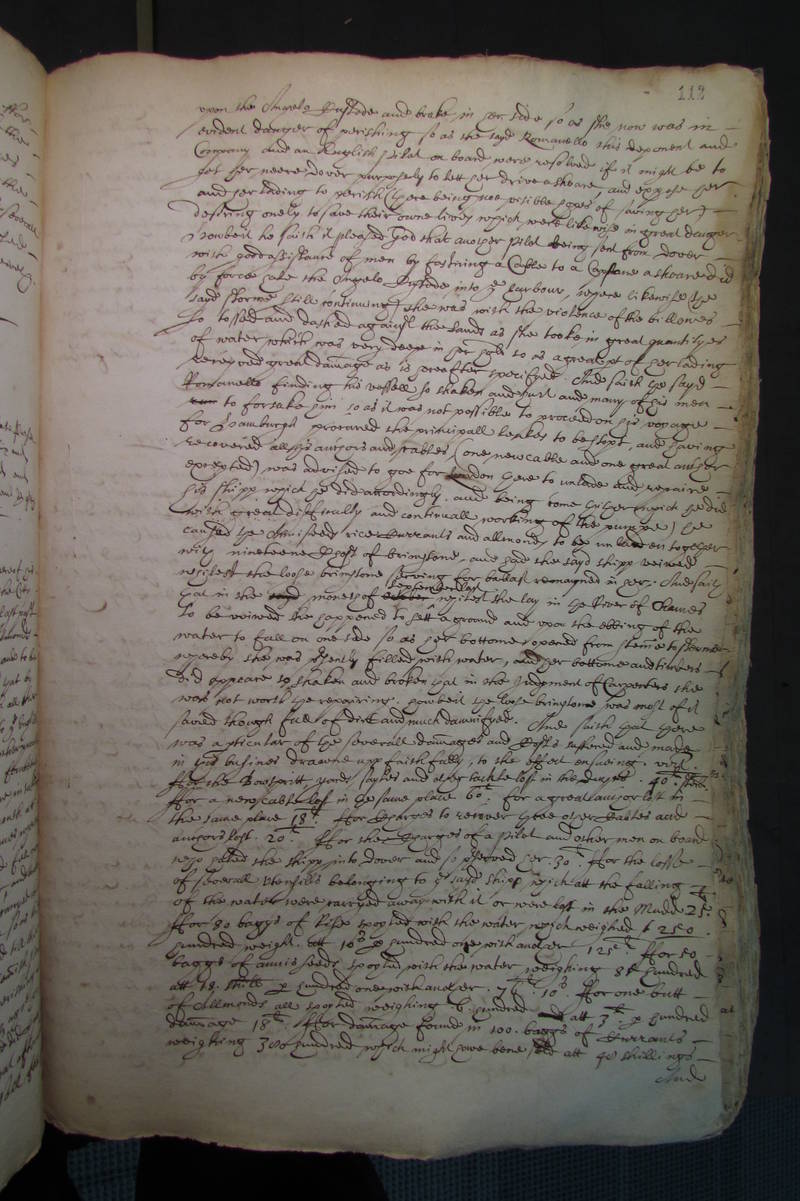 112
upon the Angelo Custode and broke in her side so as she now was in
evident danger of perishing so as the sayd Romanello this deponent and
Company and an English pilot on board were resolved if it might be to
got her neere dover purposely to lett her drive ashoare, and expose her
and her lading to perish (there being noe visible hopes of saving her)
desiring onely to save their owne lives which were likewise in great danger
howbeit he saith it pleased God that another pilot being sent from dover
with good assistance of men by fastning a Cable to a Capstane ashoare did
by force hale the Angelo Custode into the harbour, where likewise the
sayd storme still continuing she was with the violence of the billowes
so tossed and dashed against the sands as she tooke in great quantityes
of water which was very deepe in her hold so as a great pt of her lading
received great damage as is hereafter specifyed. And saith the sayd
Romanello finding his vessell so shaken and hurt and many of his men
to forsake him so as it was not possible to proceed on his voyage
for Hamburgh procured the principall leakes to be stopt, and having
recovered all his anchors and cables (one new cable and one great anchor
excepted) was advised to goe for London there to unlade and repaire
his shipp which he did accordingly, and being come hither (which he did
with great difficulty and continuall working of the pumpe) he
caused the Anniseeds rice Currants and allmonds to be unladen together
with nineteene of brimstone, and had the sayd shipp veiwed
whilest the loose brimstone serving for ballast remayned in her. And saith
that in the moneth of September last whilest she lay in the River of Thames
to be veiwed she happened to sett a ground and upon the ebbing of the
water to fall on one side so as her bottome opened from stemme to sterne
whereby she was presently filled with water, and her bottome and timbers
did appeare so shaken and broken that in the Judgment of Carpenters she
was not worth the repairing. howbeit the loose brimstone was most of it
saved though full of dirt and much damnifyed. And saith that there
was a pticular of the severall dammages and Costs suffered and made
in this busines drawne upp faithfully, to the effect ensuing, vizt.
ffor the Bowspritt yards sayles and other tackle lost in the 40 li sterl.
ffor a new cable lost in the same place 60 li. for a great anchor lost in
the same place 18 li. ffor Charges to recover three other Cables and
anchors lost. 20 li ffor the Charges of a pilot and other men on board
who haled the shipp into dover and so preserved her. 30 li. ffor the losse
of severall Utensills belonging to the sayd shipp which att the falling
of the water were carryed away with it or were lost in the Mudd 25 li
ffor 80 baggs of Rise spoyled with the water which weighed 250
hundred weight. att 10 s p hundred one with another 125 li ffor 50
baggs of anniseeds spoyled with the water weighing 85 hundred
att 18. shill p hundred one with another. 76 li. 10 s. ffor one butt
of Allmonds all spoyled weighing 6 hundred att 3 li p hundred
damage 18 li ffor damage found in 100. baggs of Currants
weighing 300 hundred which might have bene sold att 40 shillings
And